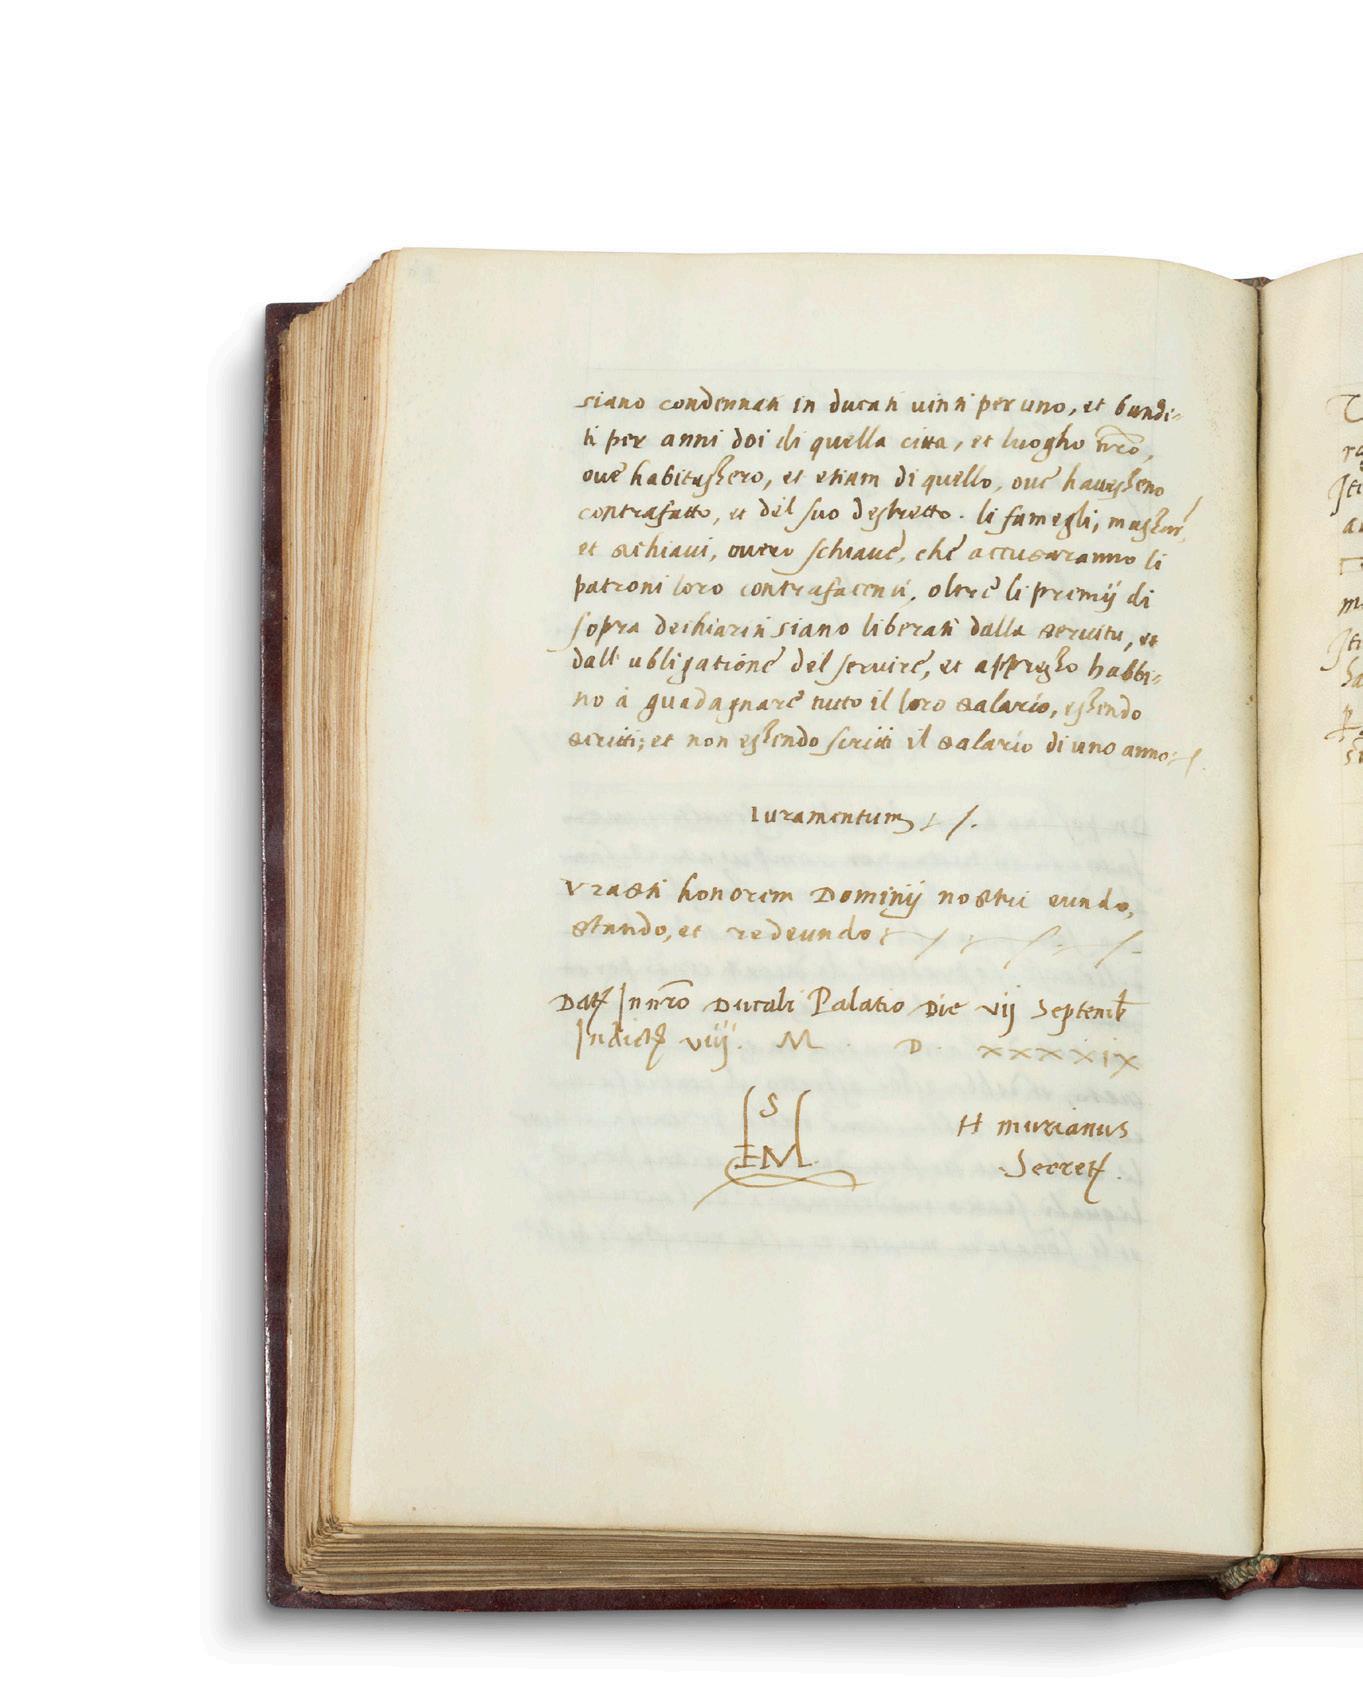 siano condennati in ducati vinti per uno, et bandi-
ti per anni doi di quella citta, et luogho nr̃o,
ove habitassero, et etiam di quello, ove havesseno
contrafatto, et del suo destretto. li famegli, massari,
et schiavi, overo schiave, che accusaranno li
patroni loro contrafacenti, oltre li premij di
sopra dechiariti siano liberati dalla servitu, et
dall' ubligatione del servire, et appresso habbi-
no à guadagnare tutto il loro salario, essendo
scritti; et non essendo scritti il salario di uno anno
Iuramentum
Vrasti honorem Dominij nostri eundo,
stando, et redeundo
Dat Innr̃o Ducali Palatio Die vij Septemb
Indict viiij. M D. XXXXIX
S
IM
H murianus
Secret.